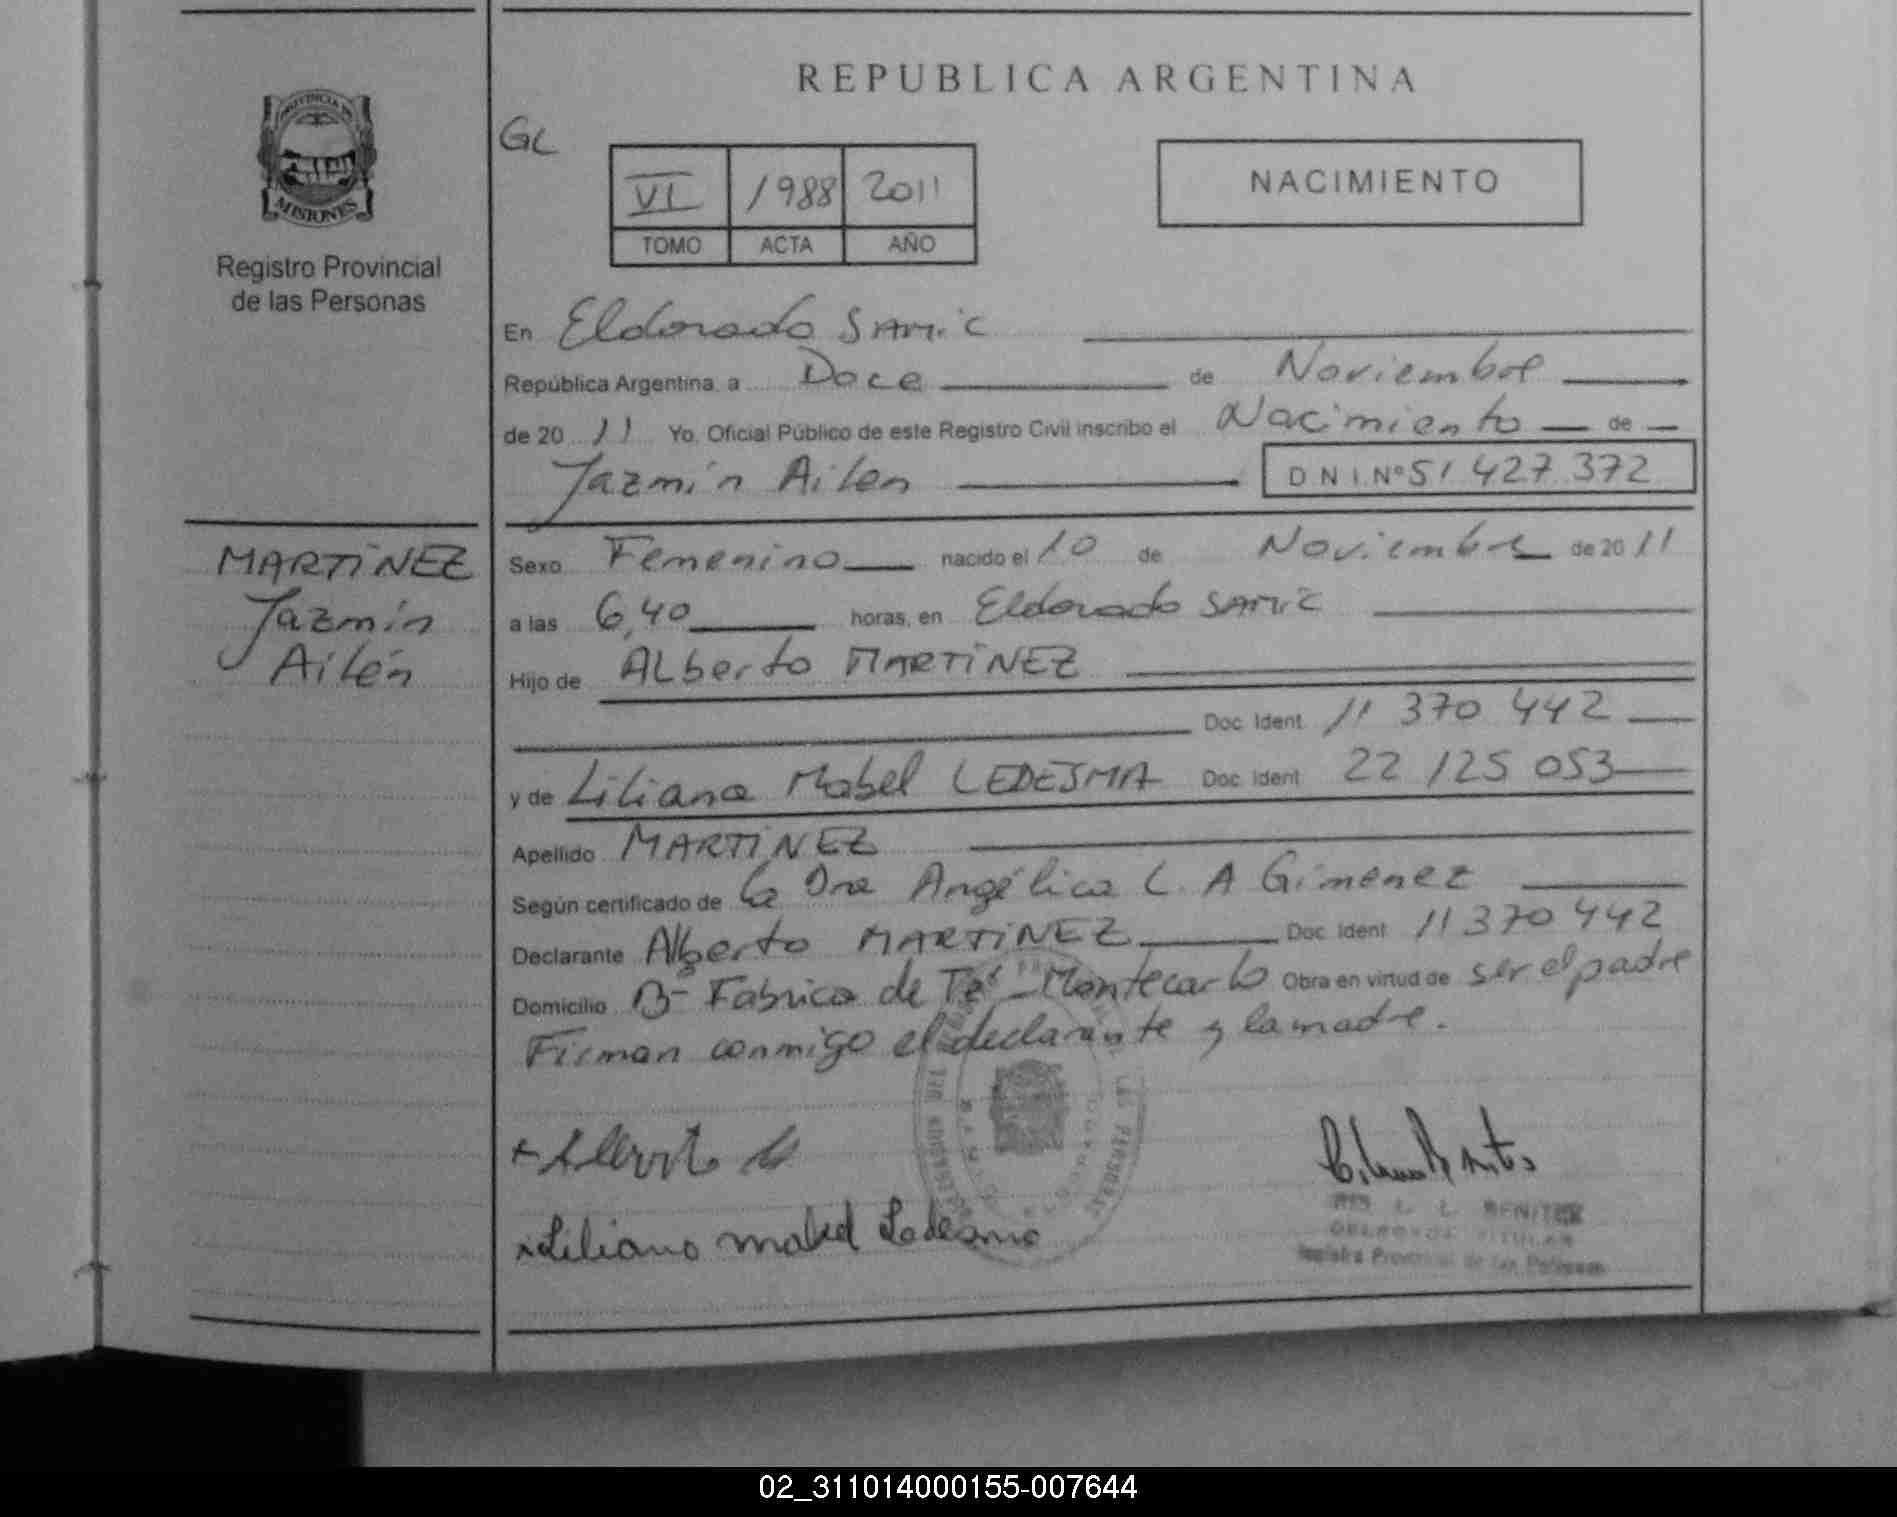 REPUBLICA ARGENTINA
PROVINCIA DE
MISIONES
Registro Provincial
de las Personas
GL
VI 1988 2011
TOMO ACTA AÑO
NACIMIENTO
En Eldorado SAMIC
República Argentina, a Doce de Noviembre
de 20 11 Yo, Oficial Público de este Registro Civil inscribo el Nacimiento de
Jazmín Ailen D N I. Nº 51 427 372
MARTÍNEZ
Jazmín
Ailén
Sexo Femenino nacido el 10 de Noviembre de 20 11
a las 6,40 horas, en Eldorado SAMIC
Hijo de Alberto MARTÍNEZ
Doc. Ident. 11 370 442
y de Liliana Mabel LEDESMA Doc. Ident. 22 125 053
Apellido MARTÍNEZ
Según certificado de la Dra Angélica L. A Gimenez
Declarante Alberto MARTÍNEZ Doc. Ident. 11 370 442
Domicilio Bº Fabrica de Té - Montecarlo Obra en virtud de ser el padre
Firman conmigo el declarante y la madre.
Alberto
Liliana Mabel Ledesma
BENITEZ
TITULAR
Registro Provincial de las Personas
02_311014000155-007644